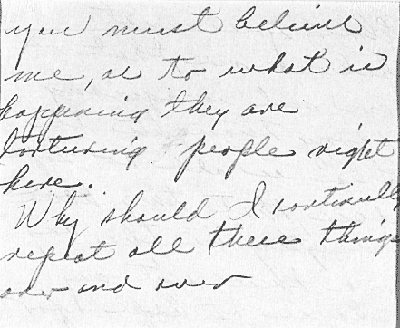 you must believe
me, as to what is
happening they are
torturing people right
here.
Why should I continually
repeat all these things
over and over